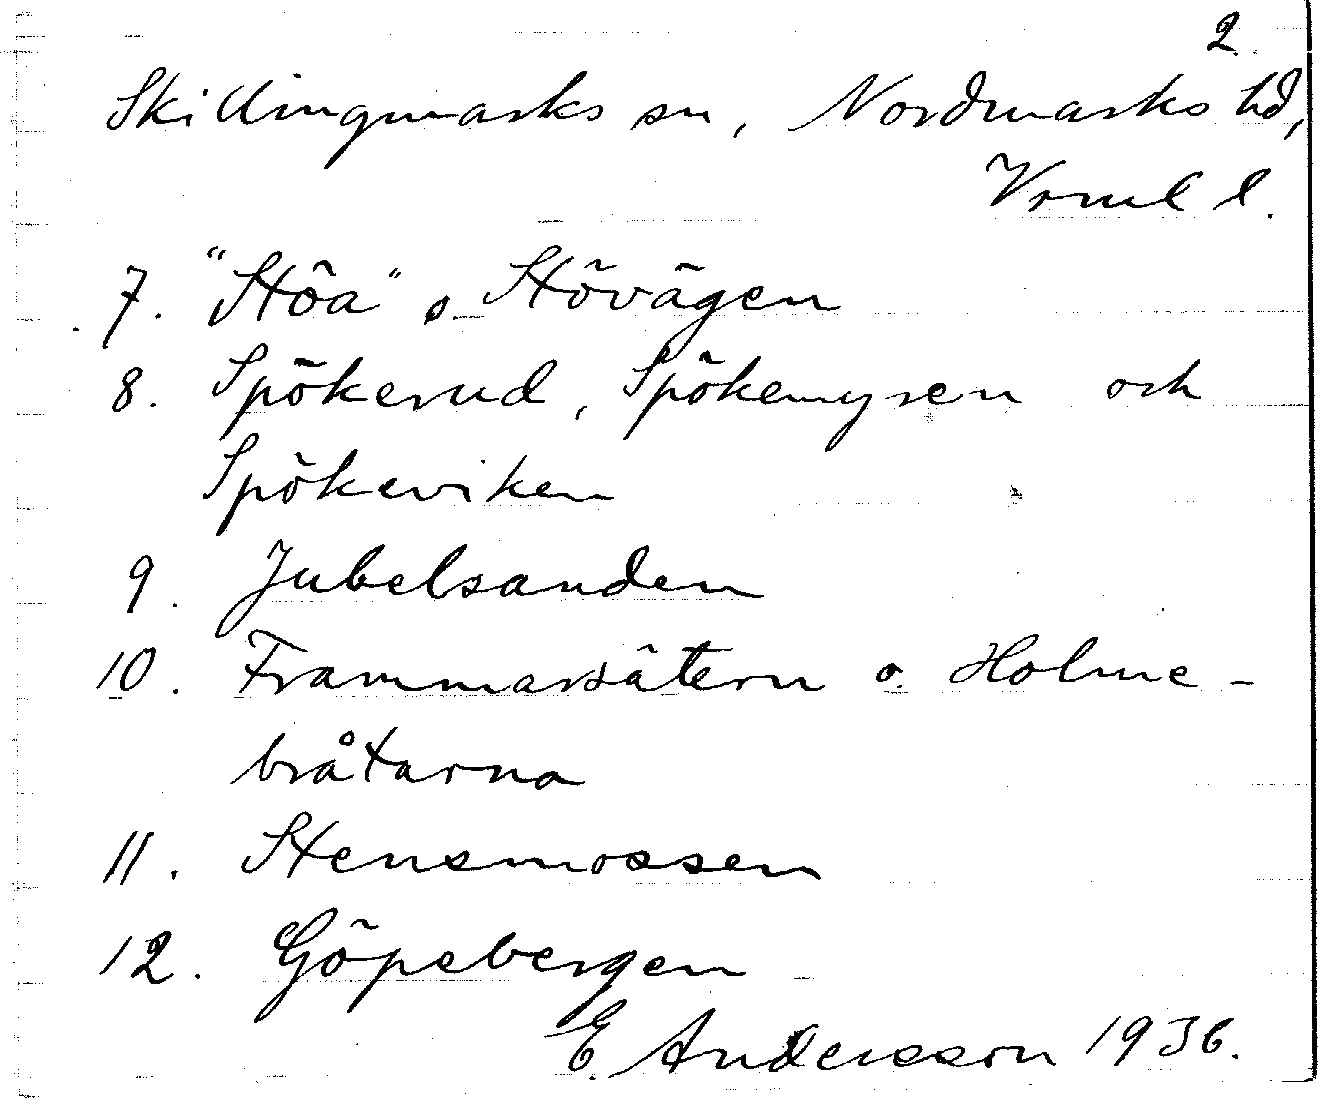 2.
Skillingmarks sn, Nordmarks hd,
Vrml l.
7. "Stöa" o. Stövägen
8. Spökerud, Spökemyren och
Spökeviken
9. Jubelsanden
10. Frammarsätern o. Holme-
bråtarna
11. Stensmossen
12. Göpebergen
E. Andersson 1936.